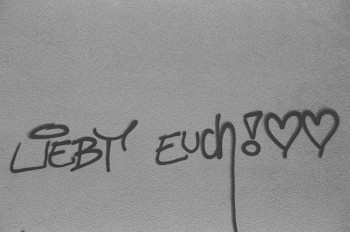 LiEBT EUCh!♡♡